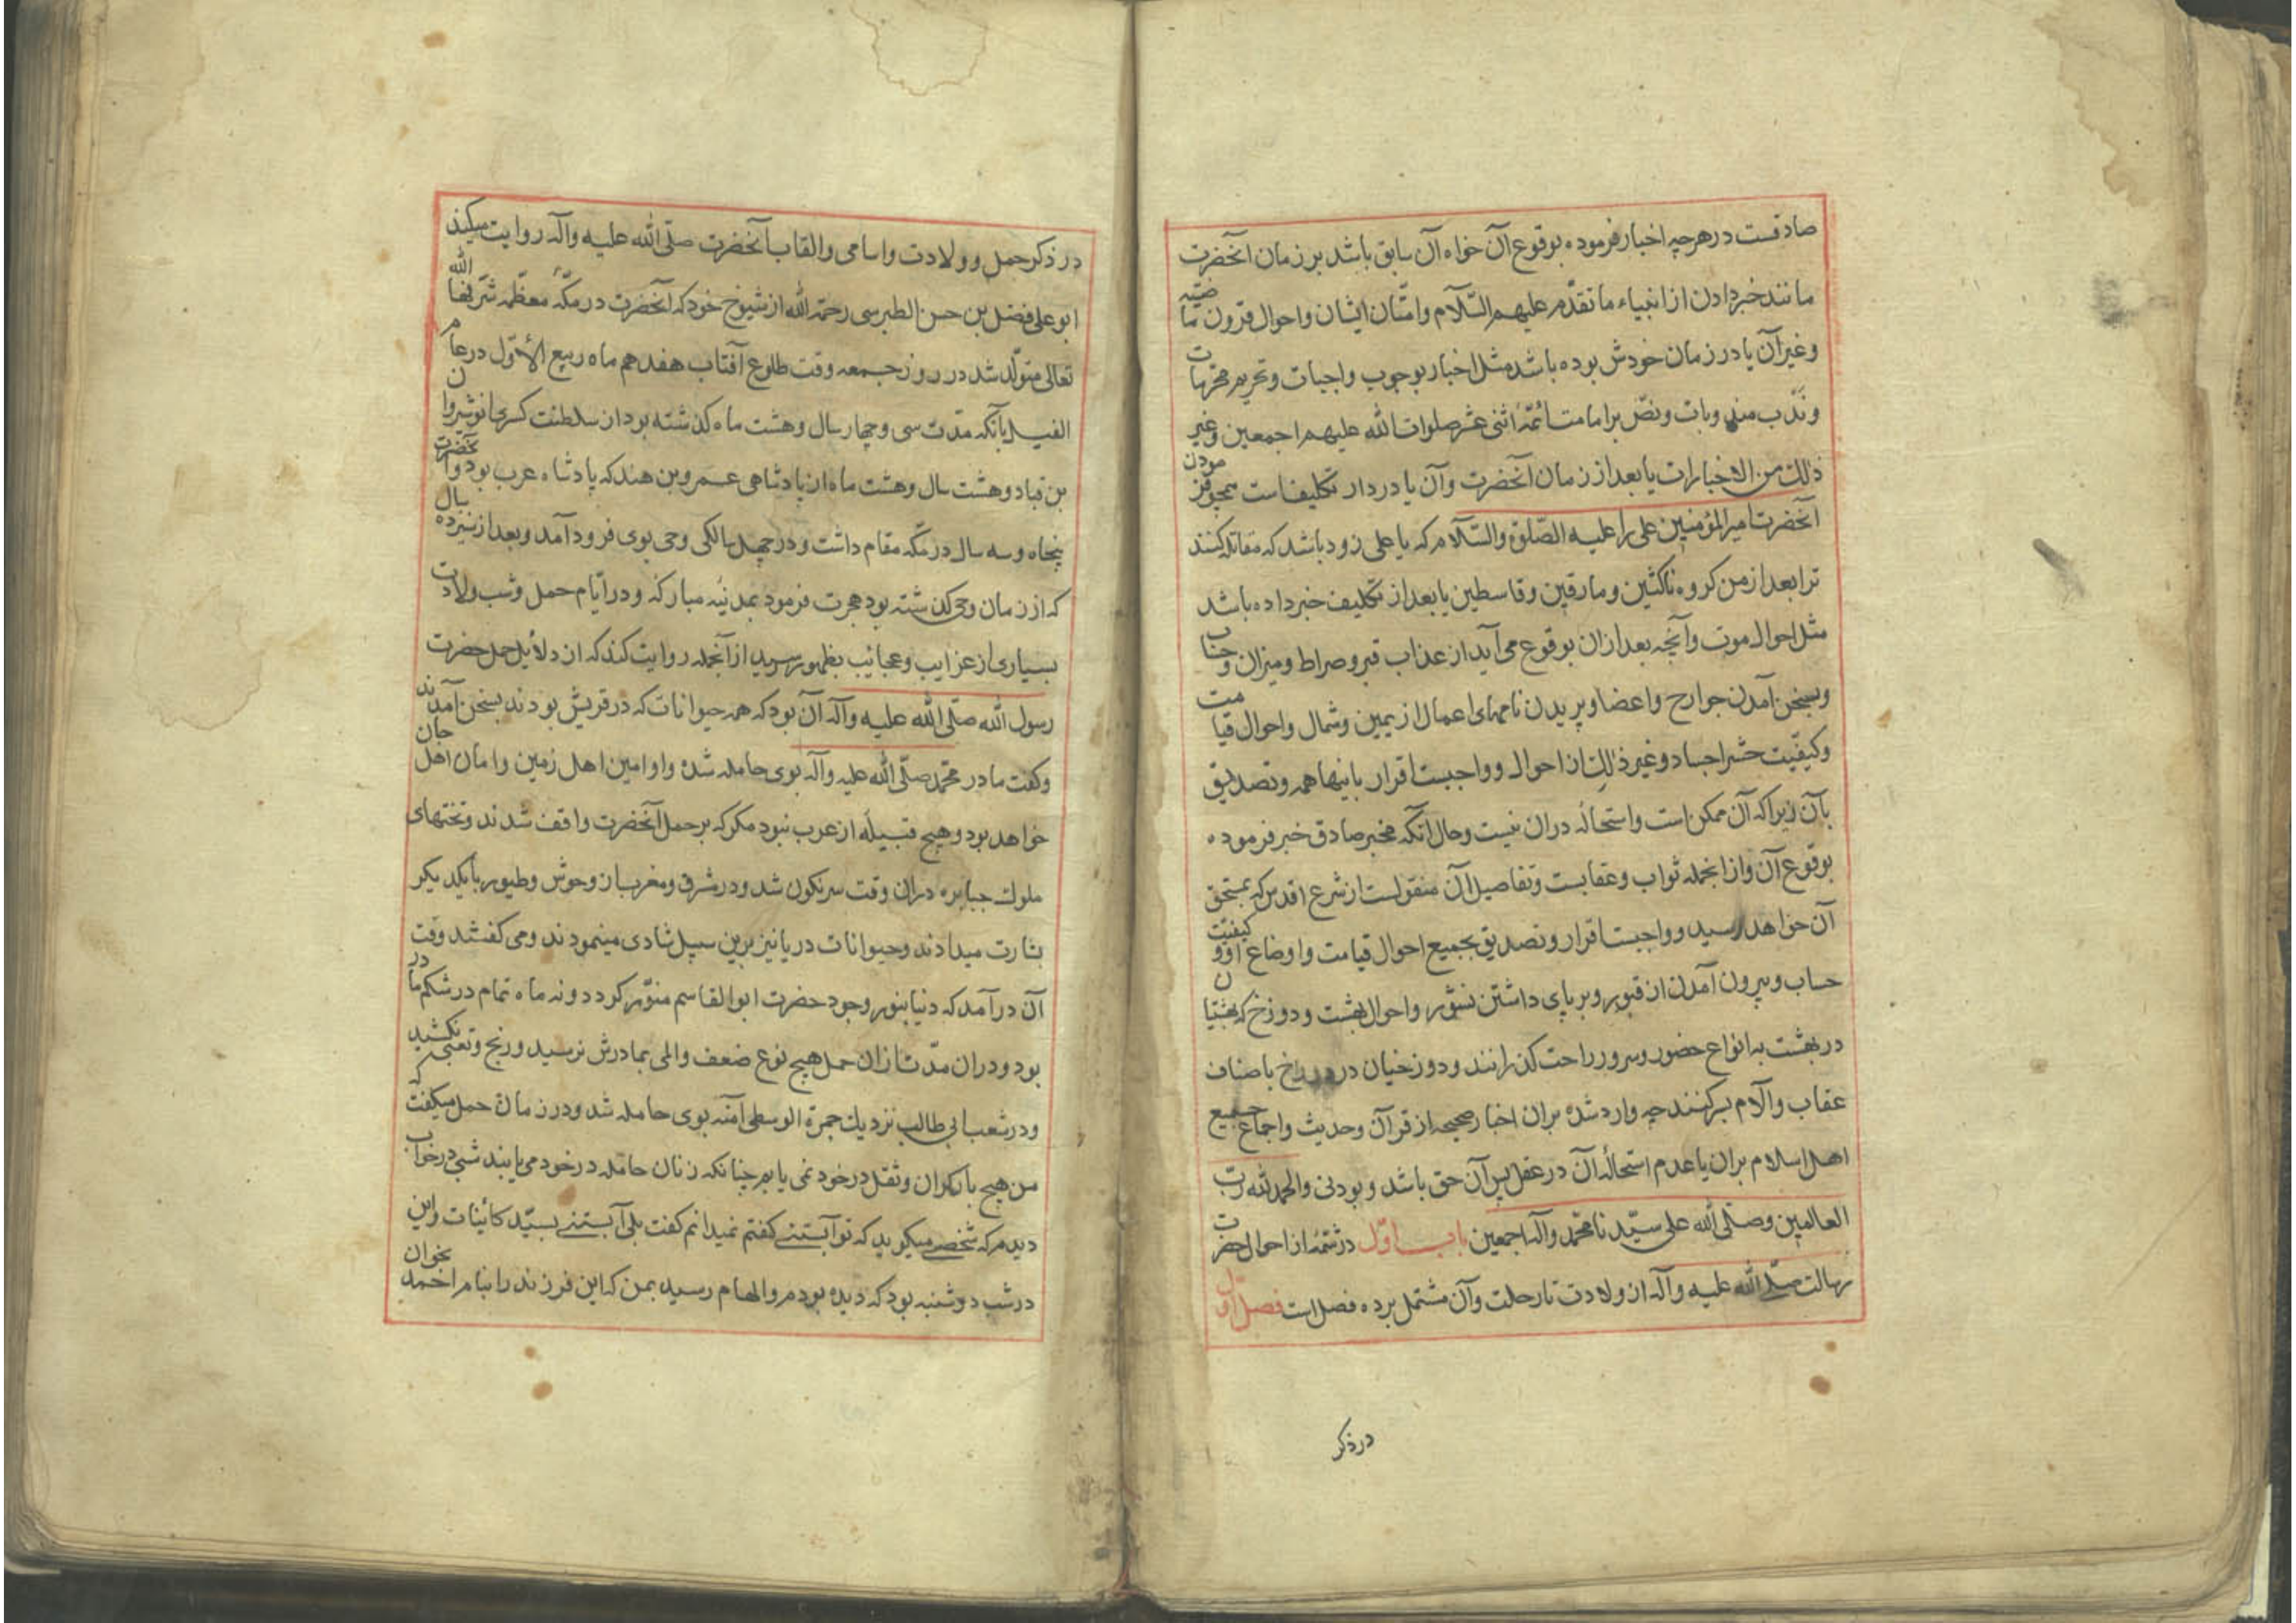 صادقست در هرچه اخبار فرموده بوقوع آن خواه آن سابق باشد بر زمان آنحضرت
مانند خبر دادن از انبیاء ما تقدّم علیهم السّلام وامّتان ایشان واحوال قرون ماضیّه
وغیر آن یا در زمان خودش بوده باشد مثل اخبار بوجوب واجبات وتحریم محرّمات
ونَدْب مندوبات ونصّ بر امامت ائمّهٔ اثنی عشر صلوات الله علیهم اجمعین وغیر
ذلک من الاخبارات یا بعد از زمان آنحضرت وآن یا در دار تکلیف است همچو فرمودن
آنحضرت امیر المؤمنین علی را علیه الصّلوة والسّلام که یا علی زود باشد که مقاتله کنند
ترا بعد از من کروه ناکثین ومارقین وقاسطین یا بعد از تکلیف خبر داده باشد
مثل احوال موت وآنچه بعد ازان بوقوع می آید از عذاب قبر وصراط ومیزان وحساب
وبسخن آمدن جوارح واعضا وپریدن نامهای اعمال از یمین وشمال واحوال قیامت
وکیفیّت حشر اجساد وغیر ذلک از احوال وواجبست اقرار باینها همه وتصدیق
بآن زیرا که آن ممکن است واستحاله دران نیست وحال آنکه مخبر صادق خبر فرموده
بوقوع آن واز انجمله ثواب وعقابست وتفاصیل آن منقولست از شرع اقدس که بمستحق
آن خواهد رسید وواجبست اقرار وتصدیق بجمیع احوال قیامت واوضاع او وکیفیّت
حساب وبیرون آمدن از قبور وبر پای داشتن نشور واحوال بهشت ودوزخ که بهشتیان
در بهشت به انواع حضور وسرور راحت کذرانند ودوزخیان در دوزخ باصناف
عقاب وآلام بسر کنند چه وارد شده بران اخبار صحیحه از قرآن وحدیث واجماع جمیع
اهل اسلام بران یا عدم استحالهٔ آن در عقل پس آن حق باشد وبودنی والحمد لله ربّ
العالمین وصلّی الله علی سیّدنا محمّد وآله اجمعین باب اوّل در شمّهٔ از احوال حضرت
رسالت صلّی الله علیه وآله از ولادت تا رحلت وآن مشتمل بر ده فصل است فصل اوّل
در ذکر
در ذکر حمل وولادت واسامی والقاب آنحضرت صلّی الله علیه وآله روایت میکند
ابو علی فضل بن حسن الطبرسی رحمة الله از شیوخ خود که آنحضرت در مکّهٔ معظّمه شرّفها الله
تعالی متولّد شد در روز جمعه وقت طلوع آفتاب هفدهم ماه ربیع الأوّل در عام
الفیل یا آنکه مدّت سی وچهار سال وهشت ماه کذشته بود از سلطنت کسری انوشیروان
بن قباد وهشت سال وهشت ماه از پادشاهی عمرو بن هند که پادشاه عرب بود وآنحضرت
پنجاه وسه سال در مکّه مقام داشت ودر چهل سالکی وحی بوی فرود آمد وبعد از سیزده سال
که از زمان وحی کذشته بود هجرت فرمود بمدینهٔ مبارکه ودر ایّام حمل وشب ولادت
بسیاری از غرایب وعجایب بظهور رسید از آنجمله روایت کنند که از دلایل حمل حضرت
رسول الله صلّی الله علیه وآله آن بود که همه حیوانات که در قریش بودند بسخن آمدند
وکفت مادر محمّد صلّی الله علیه وآله بوی حامله شده واو امین اهل زمین وامان اهل جهان
خواهد بود وهیچ قبیله از عرب نبود مکر که بر حمل آنحضرت واقف شدند وتختهای
ملوک جبابره دران وقت سرنکون شد ودر مشرق ومغرب از وحوش وطیور با یکدیکر
بشارت میدادند وحیوانات دریا نیز برین سبیل شادی مینمودند ومی کفتند وقت
آن درآمد که دنیا بنور وجود حضرت ابو القاسم منوّر کردد ونه ماه تمام در شکم مادر
بود ودران مدّت ازان حمل هیچ نوع ضعف والمی بمادرش نرسید ورنج وتعبی نکشید
ودر شعب ابی طالب نزدیک جمرة الوسطی آمنه بوی حامله شد ودر زمان حمل میکفت که
من هیچ بار کران وثقل در خود نمی یابم چنانکه زنان حامله در خود می یابند شبی در خواب
دیدم که شخصی میکوید که تو آبستنی کفتم نمیدانم کفت بلی آبستنی بسیّد کائنات واین
در شب دوشنبه بود که دیده بودم والهام رسید بمن که این فرزند را بنام احمد بخوان